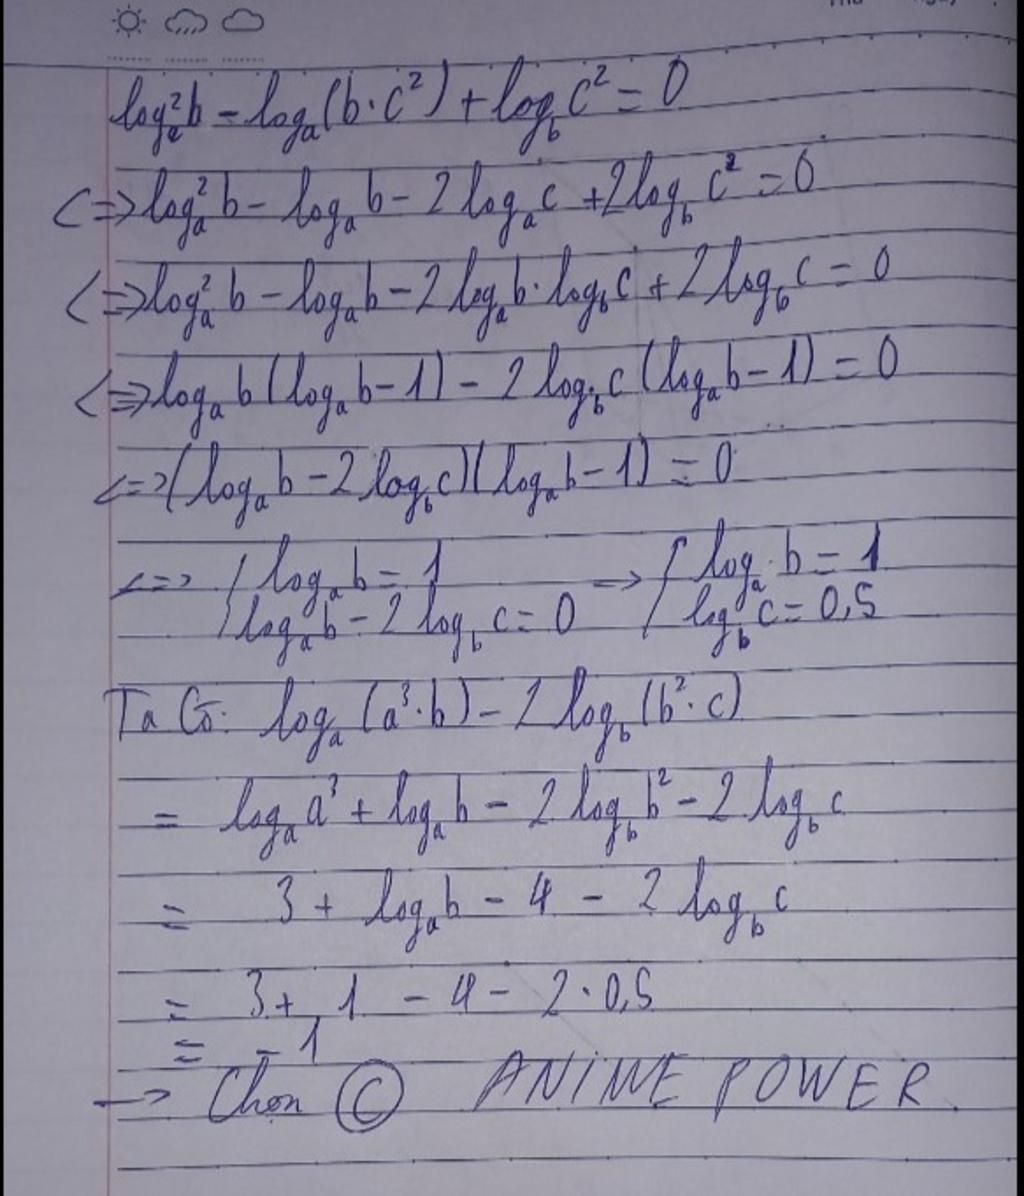 log²ₐb - logₐ(b·c²) + log_b c² = 0
<=> log²ₐ b - logₐ b - 2 logₐ c + 2 log_b c² = 0
<=> log²ₐ b - logₐ b - 2 logₐ b · log_b c + 2 log_b c = 0
<=> logₐ b (logₐ b - 1) - 2 log_b c (logₐ b - 1) = 0
<=> (logₐ b - 2 log_b c)(logₐ b - 1) = 0
<=> { logₐ b = 1 => { logₐ b = 1
logₐ b - 2 log_b c = 0 log_b c = 0,5
Ta Có: logₐ (a³·b) - 2 log_b (b²·c)
= logₐ a³ + logₐ b - 2 log_b b² - 2 log_b c
= 3 + logₐ b - 4 - 2 log_b c
= 3 + 1 - 4 - 2·0,5
= -1
-> Chọn Ⓒ ANIME POWER.